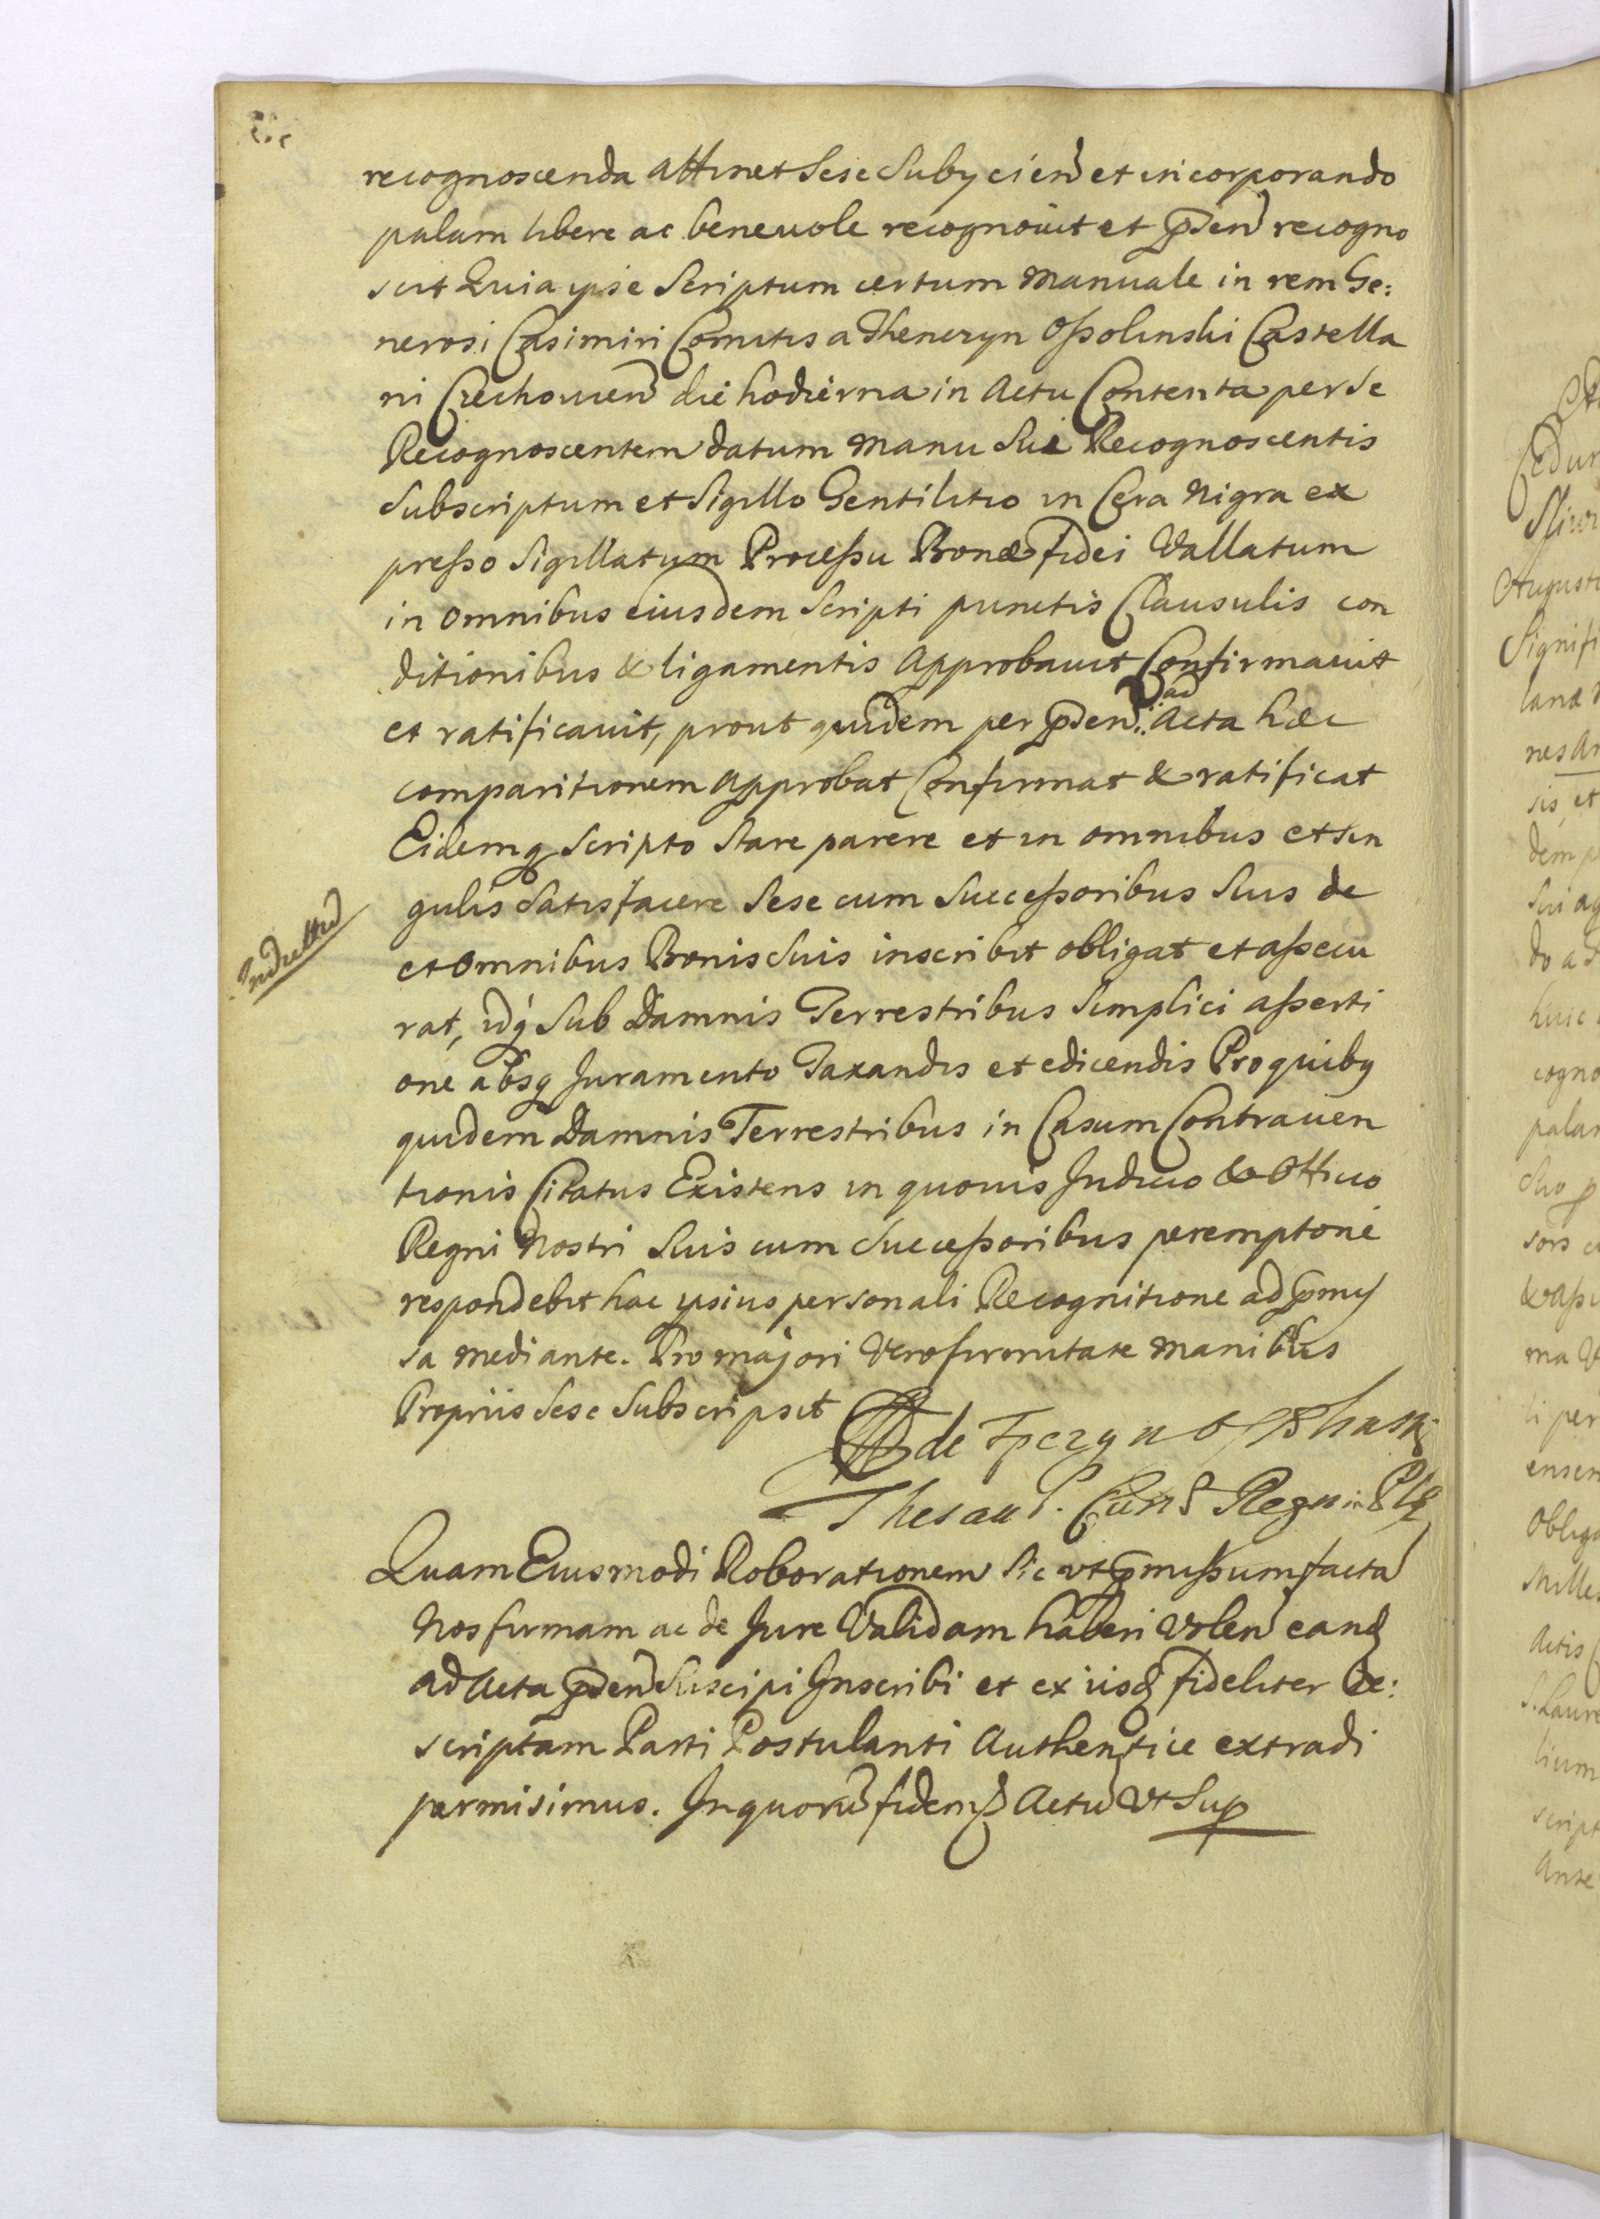 recognoscenda attinet Sese Subyciend et incorporando
palam libere ac beneuole recognouit et pnsen recogno
scit Quia ipse Scriptum certum Manuale in rem Ge:
nerosi Casimiri Comitis a Thenczyn Ossolinski Castella
ni Czechouien die hodierna in Actu Contenta per se
Recognoscentem datum manu sui Recognoscentis
Subscriptum et Sigillo Gentilitio in Cera Nigra ex
presso Sigillatum Processu Bonae fidei Vallatum
in omnibus eiusdem Scripti punctis Clausulis con
ditionibus & ligamentis Approbauit Confirmauit
et ratificauit, prout quidem per pnsen: ad Acta haec
comparitionem Approbat Confirmat & ratificat
Eidemq Scripto Stare parere et in omnibus et sin
gulis Satisfacere Sese cum Successoribus Suis de
et omnibus Bonis Suis inscribit obligat et assecu
rat, idq Sub Damnis Terrestribus Simplici asserti
one absq Juramento Taxandis et edicendis Pro quibq
quidem Damnis Terrestribus in Casum Contrauen
tionis Citatus Existens in quouis Judicio & Officio
Regni Nostri Suis cum Successoribus peremptorie
respondebit hac ipsius personali Recognitione ad pmis
sa mediante. Pro majori Vero firmitate manibus
Propriis Sese Subscripsit
de Tęczyn Ossolinski
Thesaur. Curiae Regni
Quam Eiusmodi Roborationem Sic vt pmissum facta
Nos firmam ac de Jure Validam haberi Volen eand
ad Acta pnsen Suscipi Inscribi et ex iisd fideliter De:
scriptam Parti Postulanti Authentice extradi
permisimus. In quoru fidem Actu Vt Sup